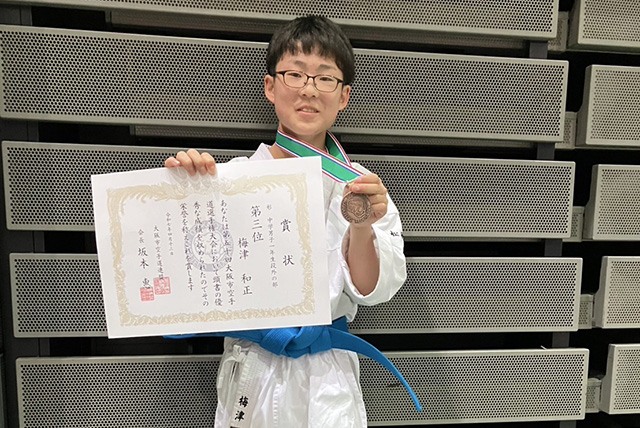 賞状
形 中学男子一年生段外の部
第三位
梅津 和正
あなたは第五十回大阪市空手
道選手権大会において頭書の優
秀な成績を収められたのでその
栄誉を称えこれを賞します
令和
大阪市空手道連盟
会長 坂本 恵
梅津